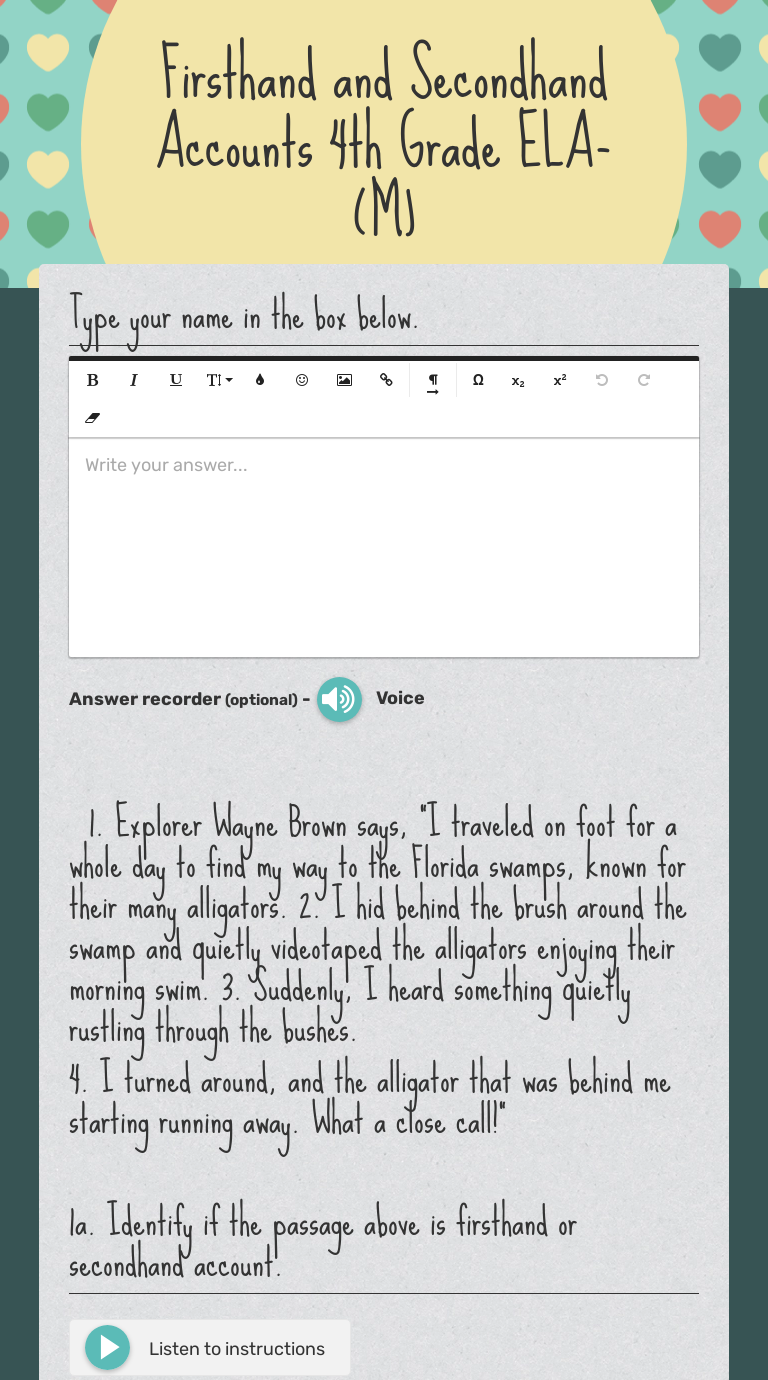 Firsthand and Secondhand
Accounts 4th Grade ELA-
(M)
Type your name in the box below.
B I U T Ω x₂ x²
Write your answer...
Answer recorder (optional) - Voice
1. Explorer Wayne Brown says, "I traveled on foot for a
whole day to find my way to the Florida swamps, known for
their many alligators. 2. I hid behind the brush around the
swamp and quietly videotaped the alligators enjoying their
morning swim. 3. Suddenly, I heard something quietly
rustling through the bushes.
4. I turned around, and the alligator that was behind me
starting running away. What a close call!"
1a. Identify if the passage above is firsthand or
secondhand account.
Listen to instructions